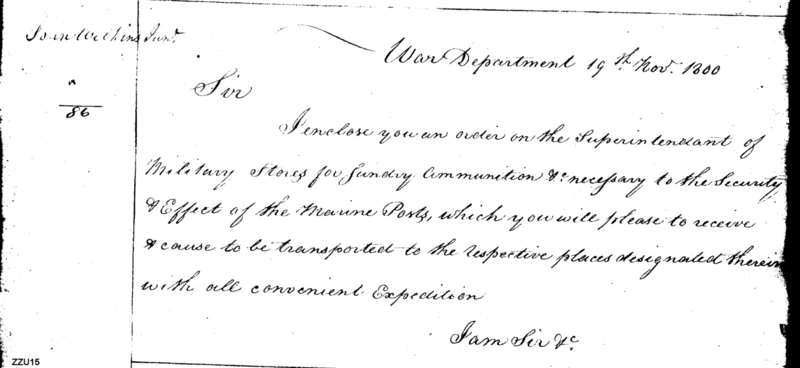 John Wilkins Junr.
War Department 19th. Novr. 1800
86
Sir
I enclose you an order on the Superintendant of
Military Stores for Sundry Ammunition &c. necessary to the Security
& Effect of the Marine Posts, which you will please to receive
& cause to be transported to the respective places designated therein
with all convenient Expedition
I am Sir &c
ZZU15